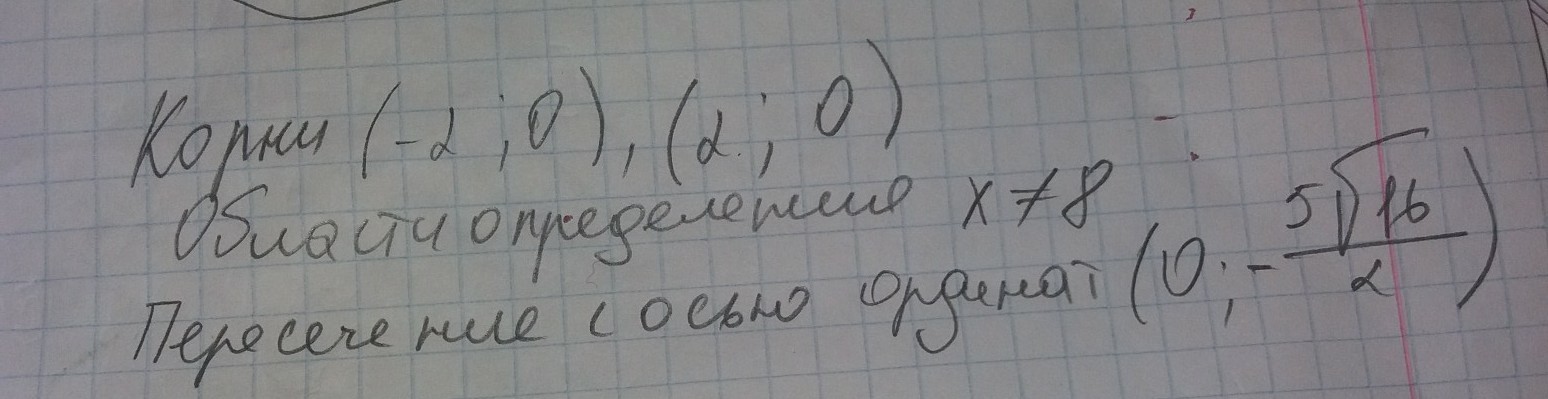 Корни (-2 ; 0), (2 ; 0)
Области определения x ≠ 8
Пересечение с осью ординат (0; -⁵√16/2)